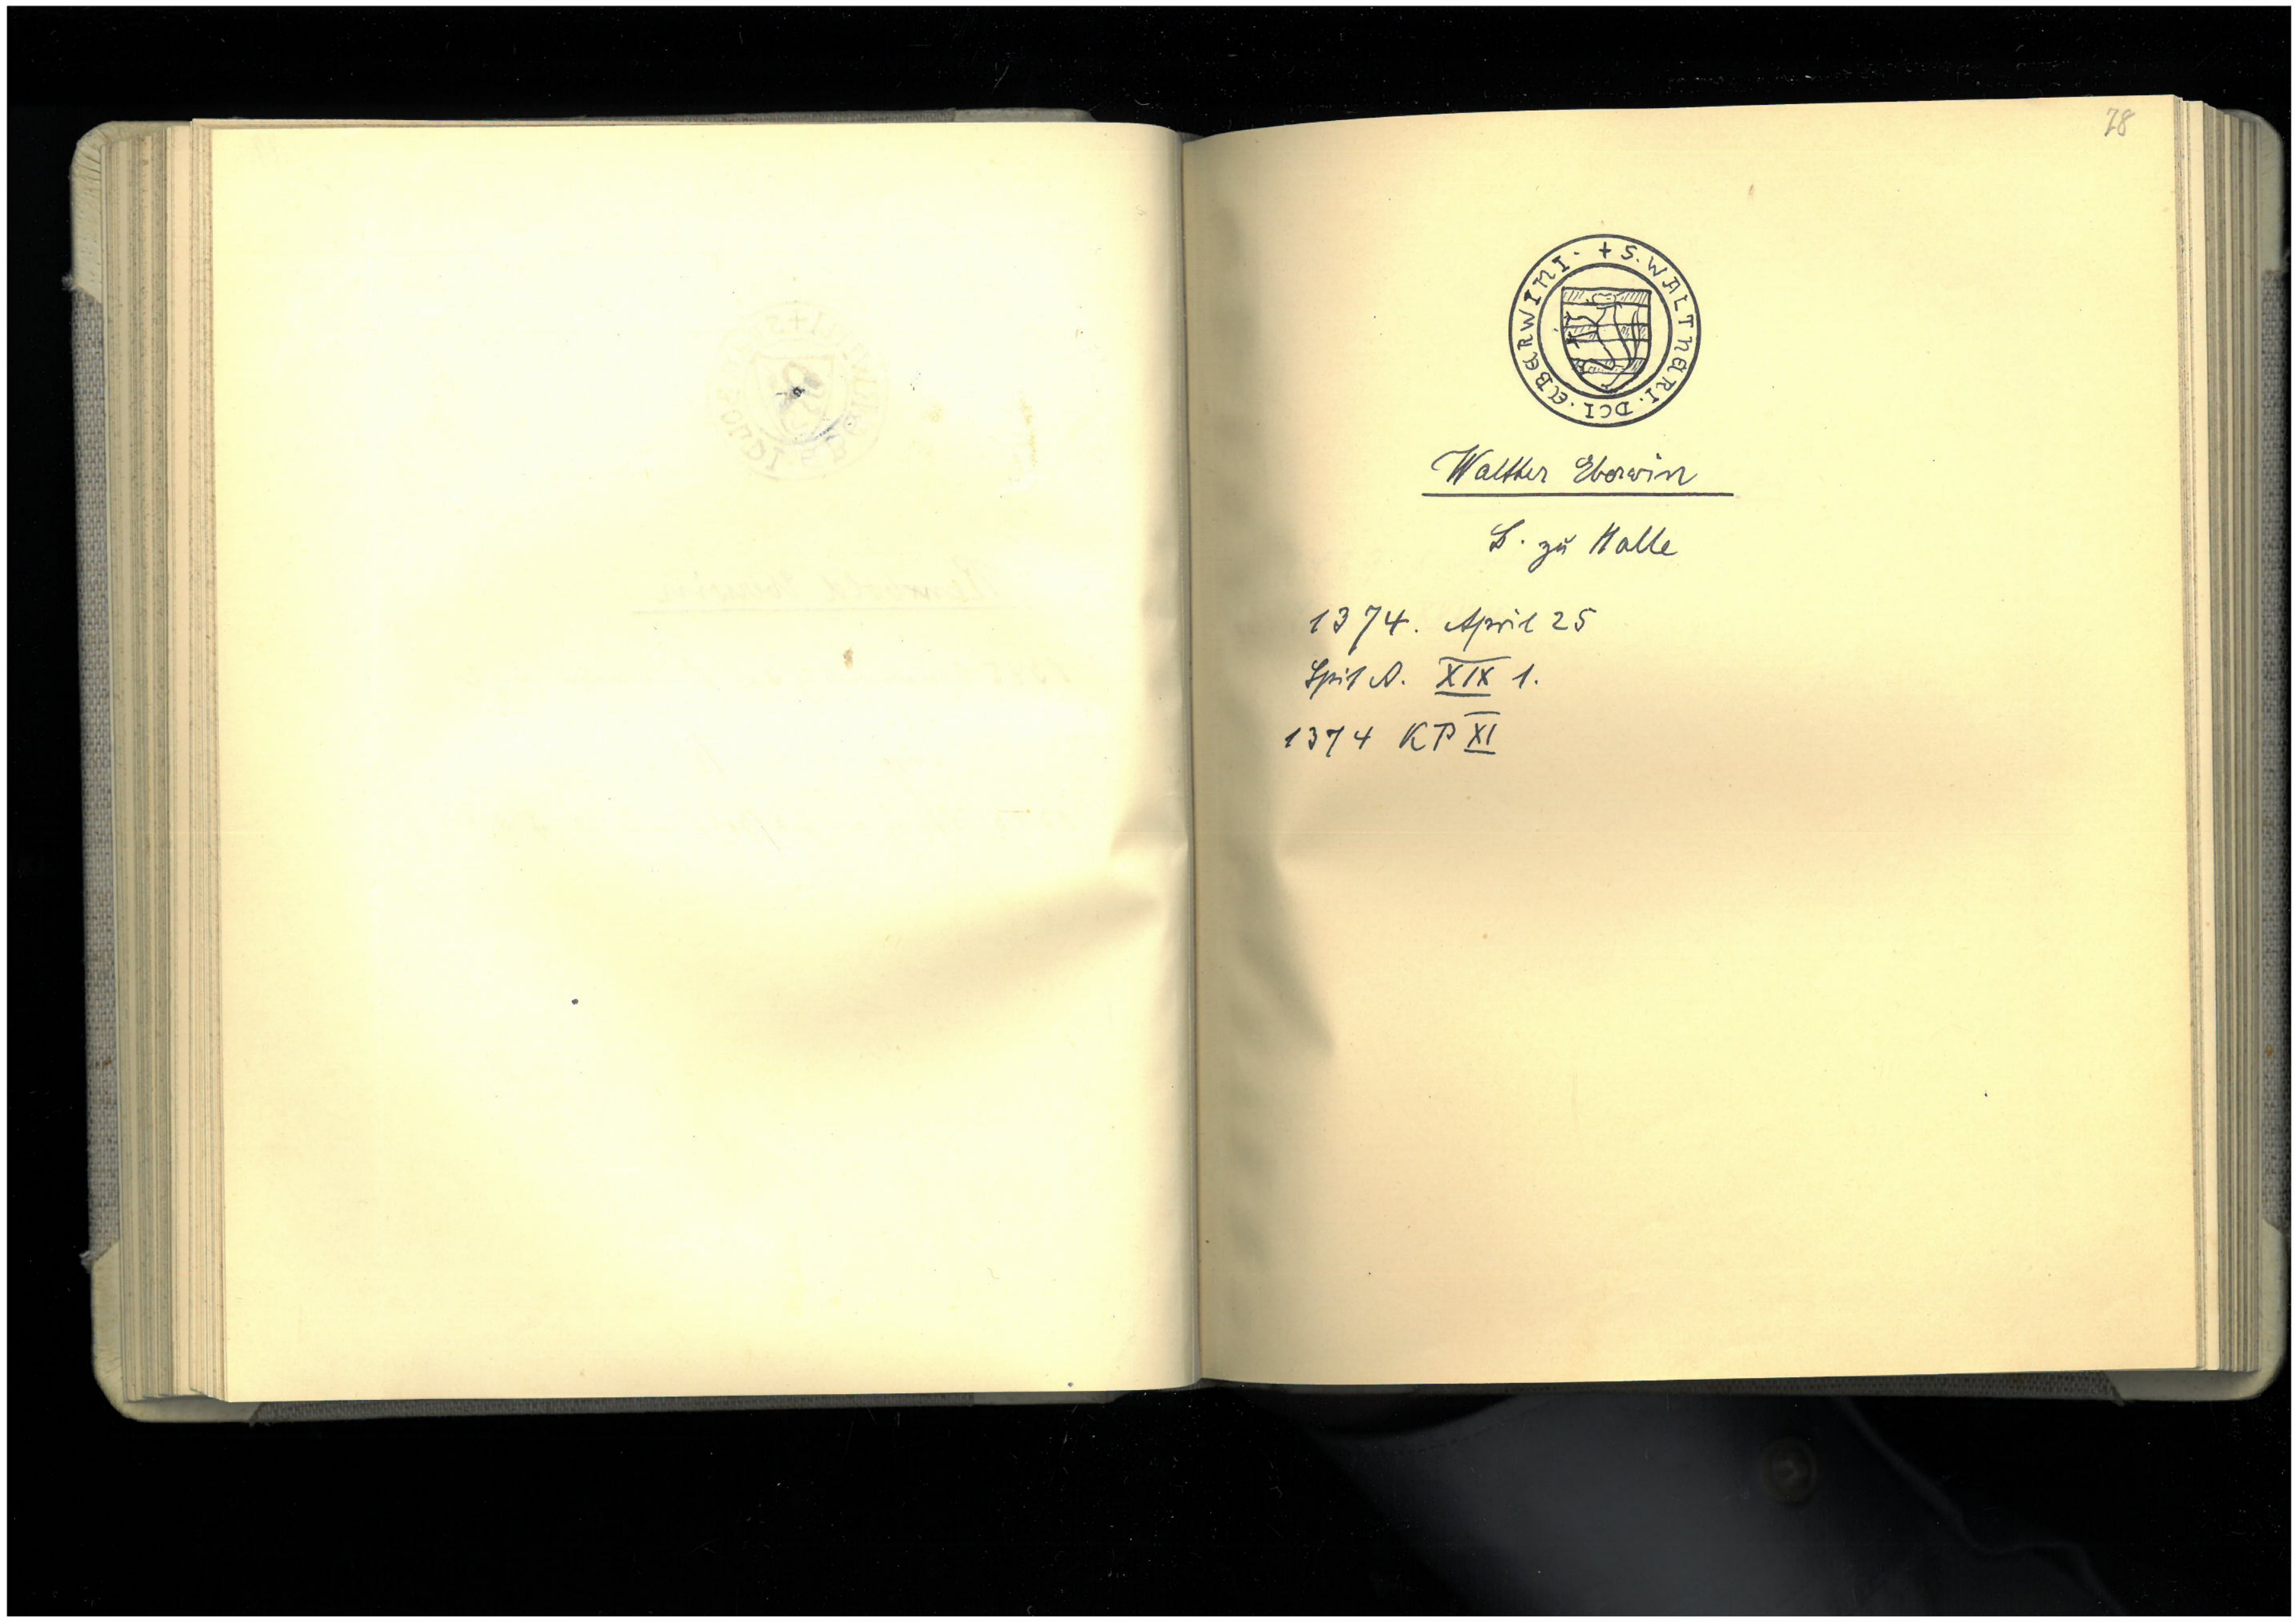 78
+ S. WALTHERI. DCI. EBERWINI.
Walther Eberwin
B. zu Halle
1374. April 25
Spit A. XIX 1.
1374 KP XI